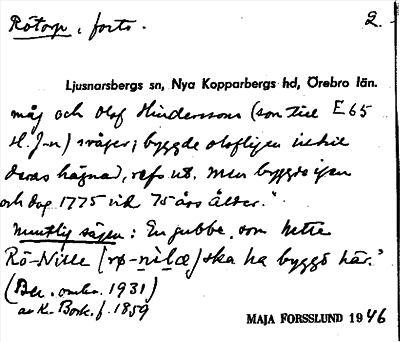 Rötorp, forts. 2.
Ljusnarsbergs sn, Nya Kopparbergs hd, Örebro län.
måg och Olof Hinderssons (son till E 65
H. J-n) svåger; byggde olofligen
deras hägnad, refs ut. men byggde igen
och dog 1775 vid 75 års ålder."
Muntlig sägen: En gubbe, som hette
Rö-Nille (rø-nìlæ) ska ha byggt här."
(Ber. omkr. 1931)
av K. Bork. f. 1859
MAJA FORSSLUND 1946